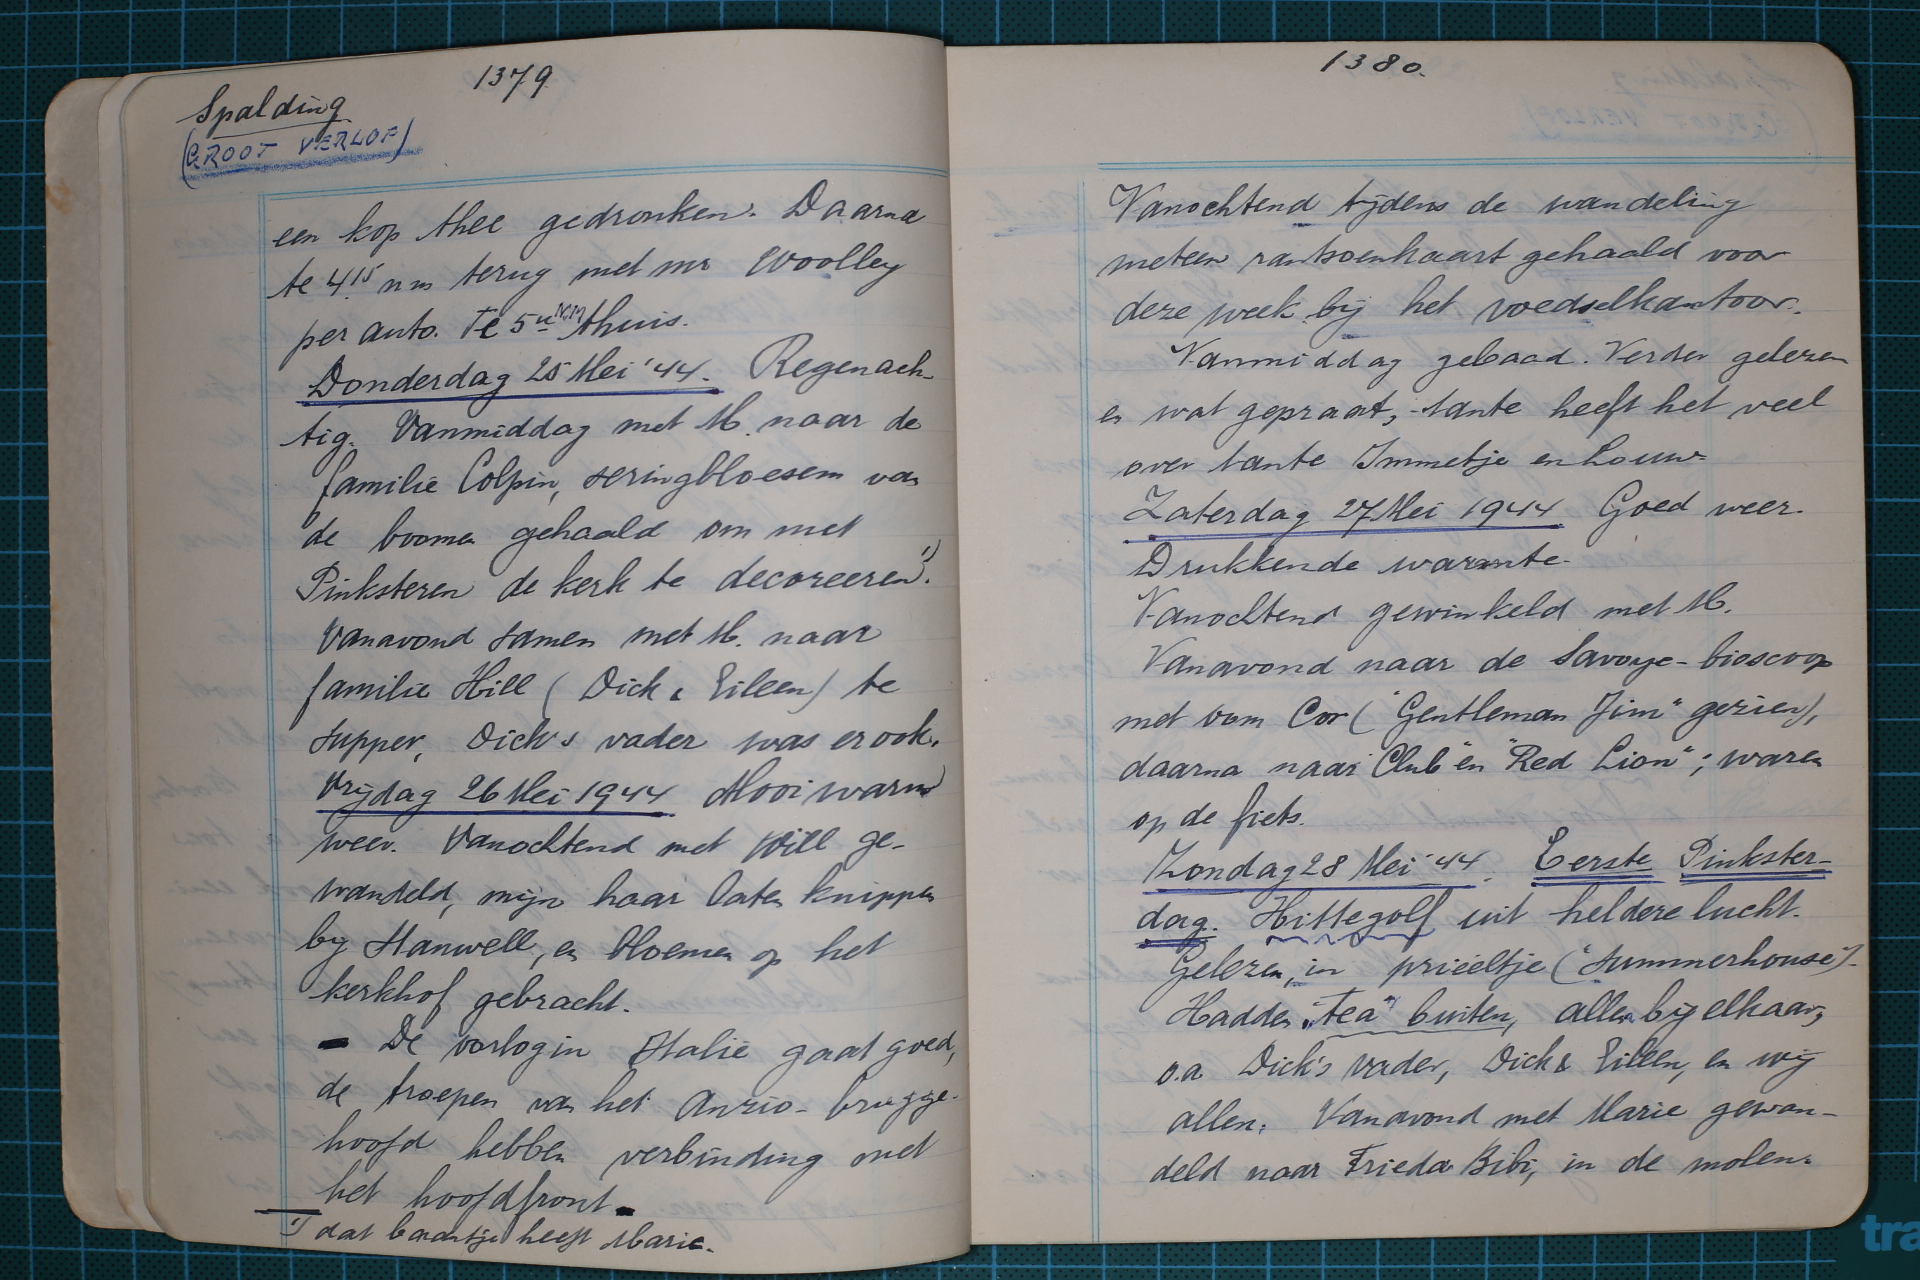 1379
Spalding
(GROOT VERLOF)
een kop thee gedronken. Daarna
te 4.15 nm terug met mr Woolley
per auto. Te 5 u N.M. thuis.
Donderdag 25 Mei '44. Regenach-
tig. Vanmiddag met M. naar de
familie Colpin, seringbloesem van
de boomen gehaald om met
Pinksteren de kerk te decoreeren 1).
Vanavond samen met M. naar
familie Hill (Dick & Eileen) te
supper, Dick's vader was er ook.
Vrijdag 26 Mei 1944 Mooi warm
weer. Vanochtend met Will ge-
wandeld, mijn haar laten knippen
bij Stanwell, en bloemen op het
kerkhof gebracht.
— De oorlog in Italië gaat goed,
de troepen van het Anzio-brugge-
hoofd hebben verbinding met
het hoofdfront.
1) dat baantje heeft Marie.
1380.
Vanochtend tijdens de wandeling
meteen rantsoenkaart gehaald voor
deze week bij het voedselkantoor.
Vanmiddag gebaad. Verder gelezen
en wat gepraat, tante heeft het veel
over tante Immetje en Louw.
Zaterdag 27 Mei 1944 Goed weer.
Drukkende warmte.
Vanochtend gewinkeld met M.
Vanavond naar de Savoye-bioscoop
met oom Cor ("Gentleman Jim" gezien),
daarna naar "Club" en "Red Lion"; waren
op de fiets.
Zondag 28 Mei '44. Eerste Pinkster-
dag. Hittegolf uit heldere lucht.
Gelezen, in prieeltje ("Summerhouse").
Hadden "Tea" buiten, allen bij elkaar,
o.a. Dick's vader, Dick & Eileen, en wij
allen. Vanavond met Marie gewan-
deld naar Frieda Bibi, in de molen.